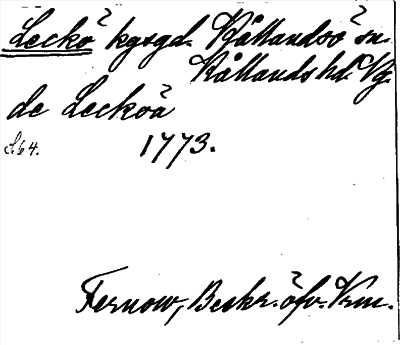 Leckö kgsgd. Kållandsö sn.
Kållands hd. Vg.
de Leckoä
S. 64. 1773.
Fernow, Beskr. öfv. Vrm.